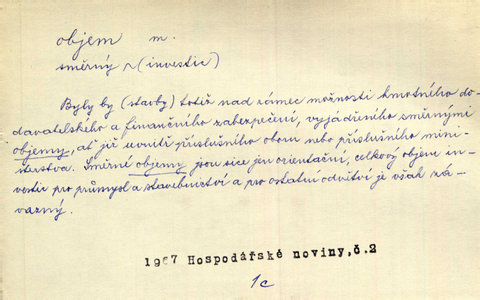 objem m.
směrný ~ (investic)
Byly by (stavby) totiž nad rámec možností hmotného do-
davatelského a finančního zabezpečení, vyjádřeného směrnými
objemy, ať již uvnitř příslušného oboru nebo příslušného mini-
sterstva. Směrné objemy jsou sice jen orientační, celkový objem in-
vestic pro průmysl a stavebnictví a pro ostatní odvětví je však zá-
vazný.
1967 Hospodářské noviny,č.2
1c